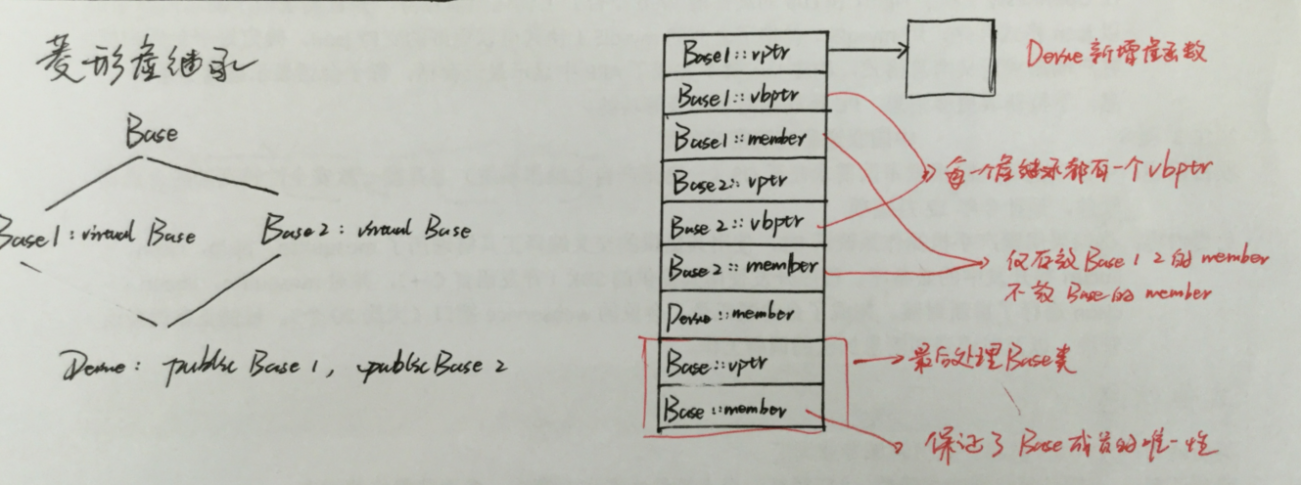 菱形虚继承
Base
Base1: virtual Base
Base2: virtual Base
Derive: public Base1, public Base2
Base1::vptr
Base1::vbptr
Base1::member
Base2::vptr
Base2::vbptr
Base2::member
Derive::member
Base::vptr
Base::member
Derive新增虚函数
每一个虚继承都有一个vbptr
仅存放Base1 2的member
不放Base的member
最后处理Base类
保证了Base成员的唯一性